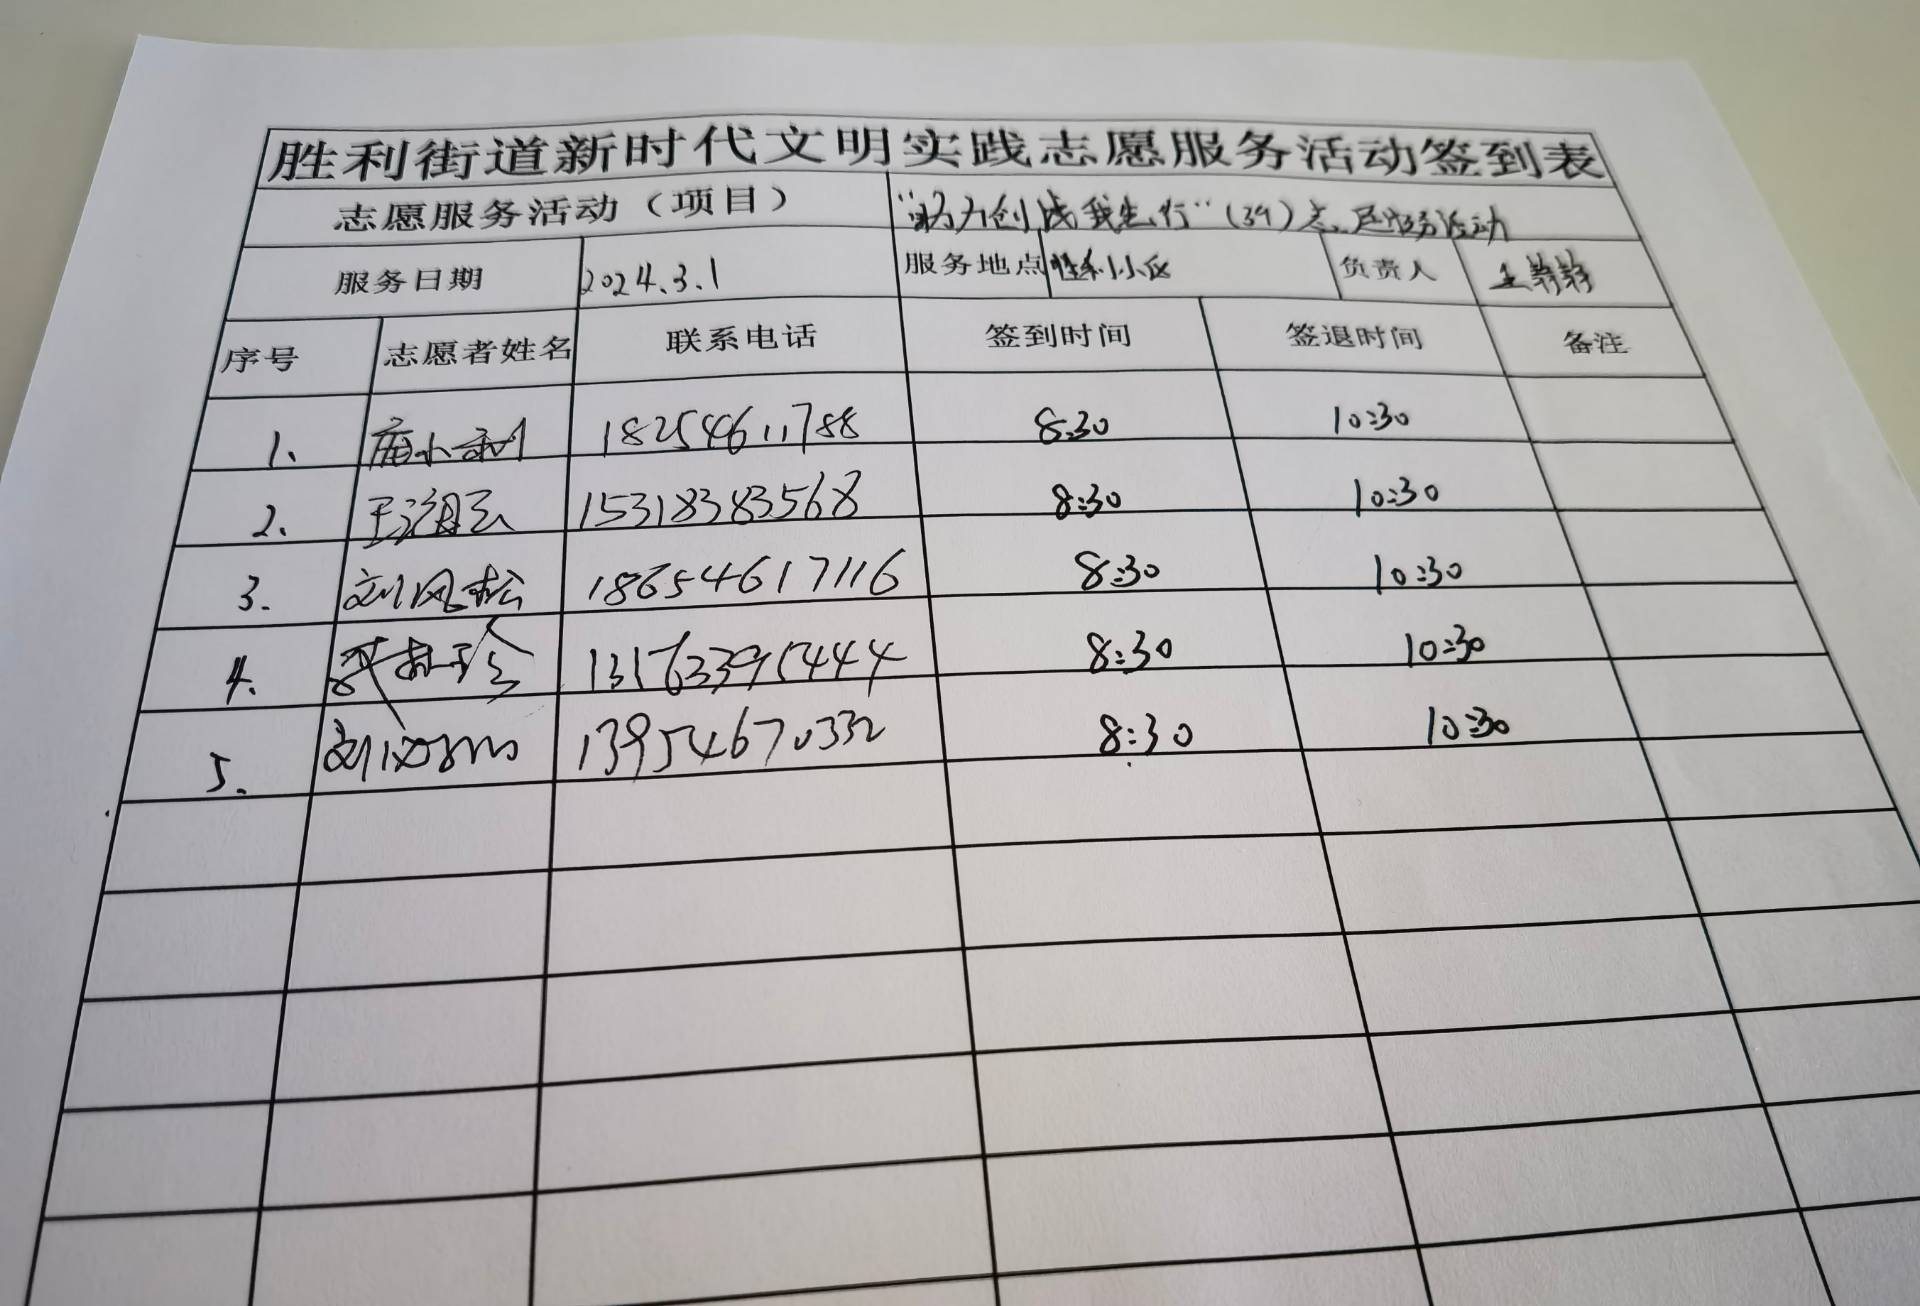 胜利街道新时代文明实践志愿服务活动签到表
志愿服务活动（项目） “助力创城我先行”（39）志愿服务活动
服务日期 2024.3.1 服务地点 胜利小区 负责人 王
序号 志愿者姓名 联系电话 签到时间 签退时间 备注
1. 18254611788 8:30 10:30
2. 王海云 15318383568 8:30 10:30
3. 刘风松 18654617116 8:30 10:30
4. 8:30 10:30
5. 刘 13954670332 8:30 10:30